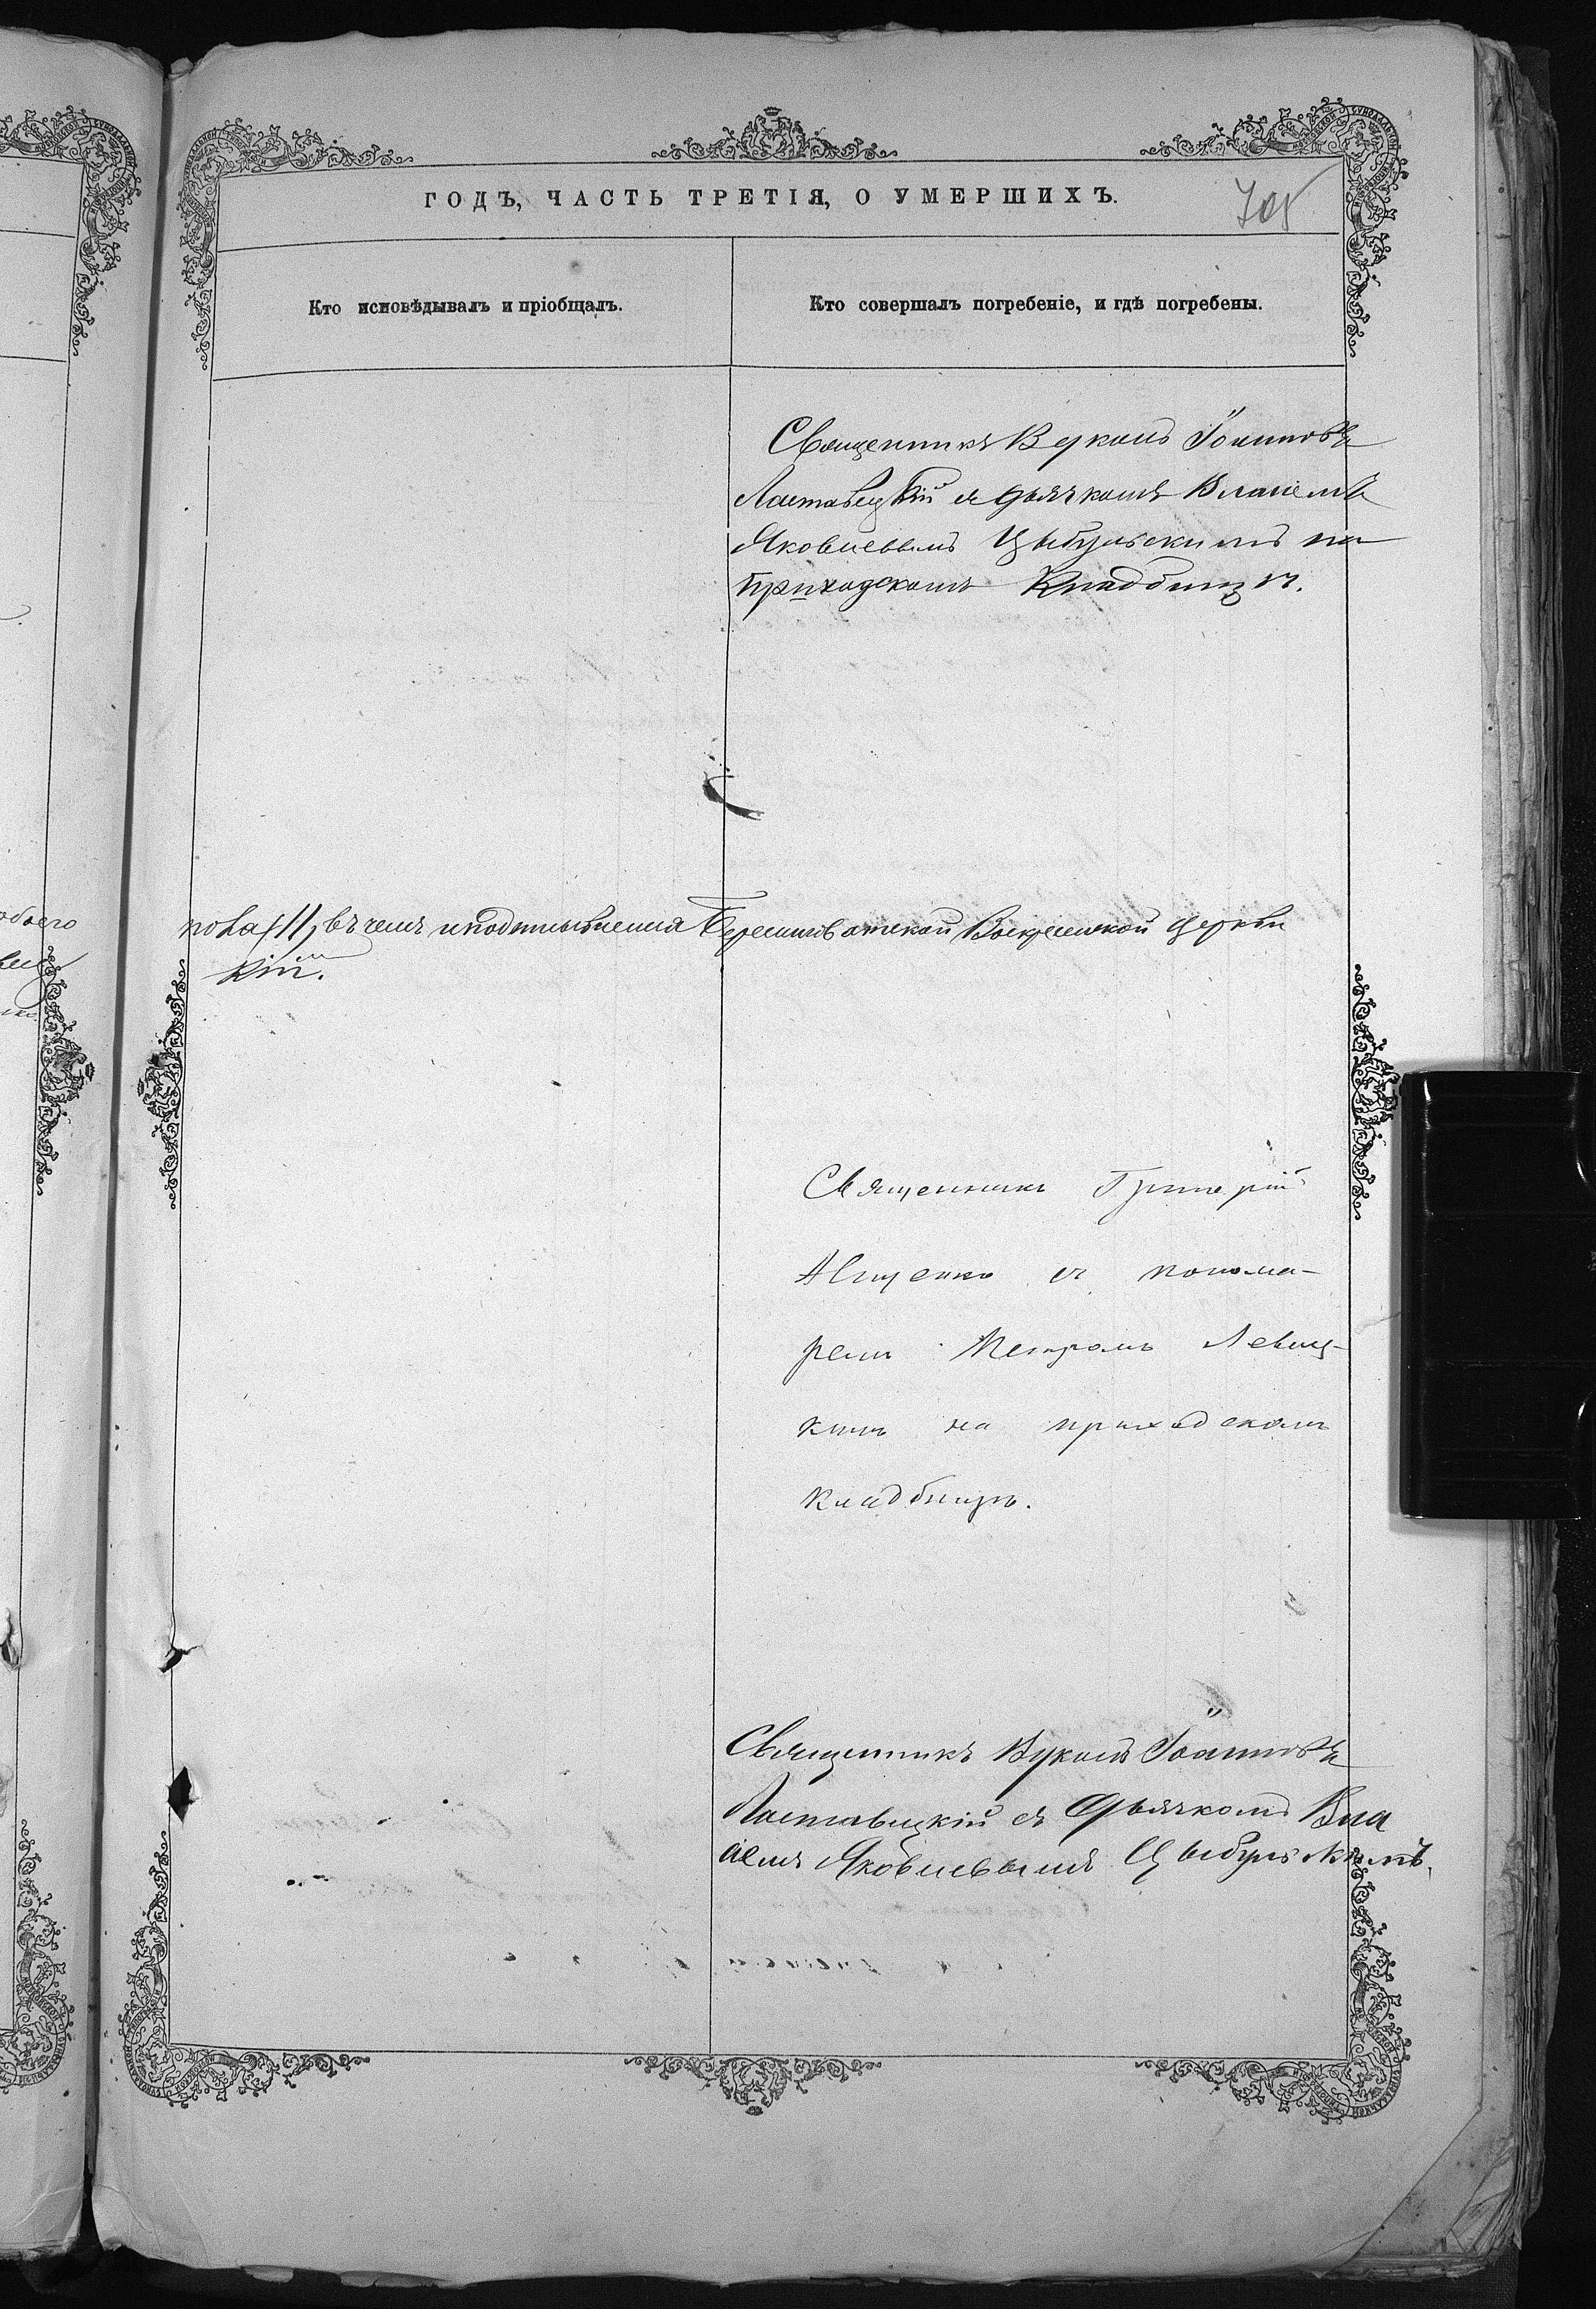 ГОДЪ, ЧАСТЬ ТРЕТІЯ, О УМЕРШИХЪ.
705
Кто исповѣдывалъ и пріобщалъ.
Кто совершалъ погребеніе, и гдѣ погребены.
Священникъ Вуколъ Іоанновъ
Лоставецкій съ дьячкомъ Власіемъ
Яковлевымъ Цыбульскимъ на
приходскомъ Кладбищѣ.
пола 11, въ чемъ и подтисненная Берестоватской Воскресенской Церкви
кій.
Священникъ Григорій
Авщенко съ понома-
ремъ Петромъ Левиц-
кимъ на приходскомъ
кладбищѣ.
Священникъ Вуколъ Іоанновъ
Лоставецкій съ Дьячкомъ Вла
сіемъ Яковлевымъ Цыбульскимъ.
обоего